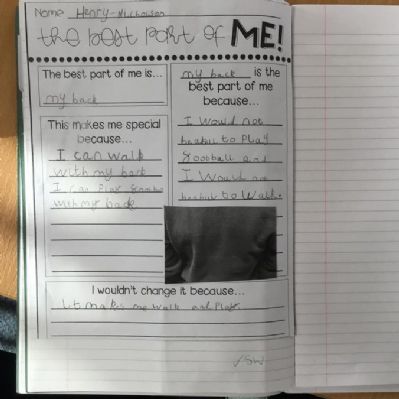 Name Henry-Nicholson
the best part of ME!
The best part of me is...
my back
This makes me special
because...
I can walk
with my back
I can Play
with my back
my back is the
best part of me
because...
I would not
beabul to Play
Foooball and
I Would not
beabul to walk.
I wouldn't change it because...
it makes me walk and Play.